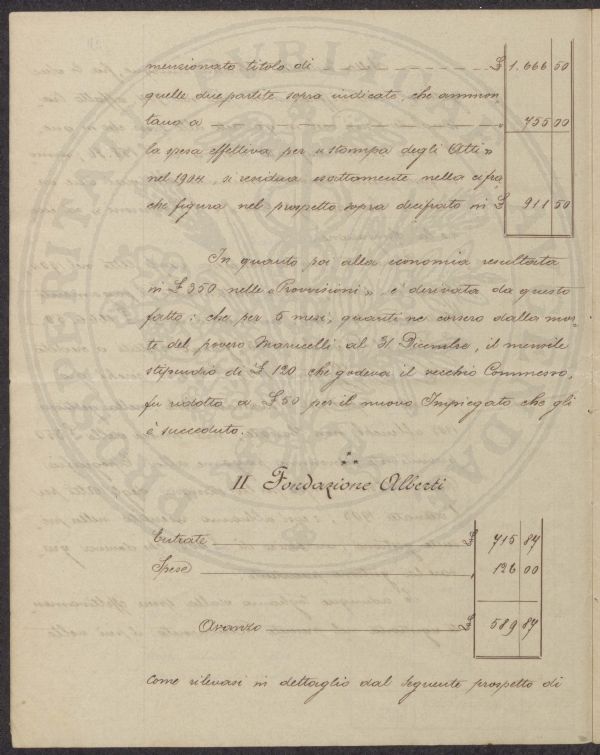 menzionato titolo di £ 1.666 50
quelle due partite sopra indicate, che ammon-
tano a " 755 00
la spesa effettiva per "Stampa degli Atti"
nel 1904, si residua esattamente nella cifra
che figura nel prospetto sopra decifrato in £ 911 50
In quanto poi alla economia resultata
in £ 350 nelle "Provvisioni", è derivata da questo
fatto: che per 5 mesi, quanti ne corsero dalla mor-
te del povero Marucelli al 31 Dicembre, il mensile
stipendio di £ 120 che godeva il vecchio Commesso,
fu ridotto a £ 50 per il nuovo Impiegato che gli
è succeduto.
II Fondazione Alberti
Entrate £ 715 87
Spese " 126 00
Avanzo £ 589 87
come rilevasi in dettaglio dal seguente prospetto di